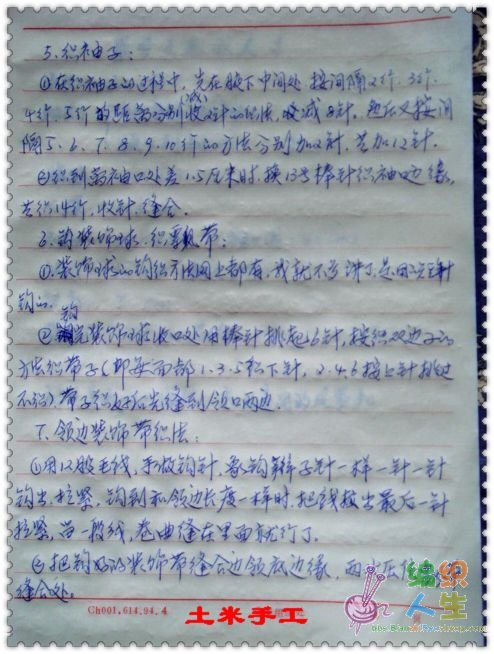 5. 织袖子:
①在织袖子的过程中,先在腋下中间处 按间隔2行. 3行.
4行. 5行的距离分别收(减)2针的织法,收减8针. 然后又按间
隔5. 6. 7. 8. 9. 10行的方法分别加2针,共加12针.
②织到离袖口处差1.5厘米时,换13号棒针织袖口边缘,
共织14行,收针.缝合.
6. 钩装饰球.织飘带:
①.装饰球的钩织方法网上都有,我就不多讲了,是用2.0针
钩的.
②钩完装饰球收口处用棒针挑起6针,按织双边子的
方法织带子(即每面都1.3.5织下针, 2.4.6按上针挑过
不织).带子织好后先缝到领口两边.
7. 领边装饰带织法:
①用12股毛线,手做钩针,象钩辫子针一样一针一针
钩出,拉紧,钩到和领边长度一样时.把线拔出最后一针
拉紧,留一股线,卷曲缝在里面就行了.
②把钩好的装饰带缝合边领底边缘,两
缝合处。
Ch001.614.94.4
土米手工
编织
人生